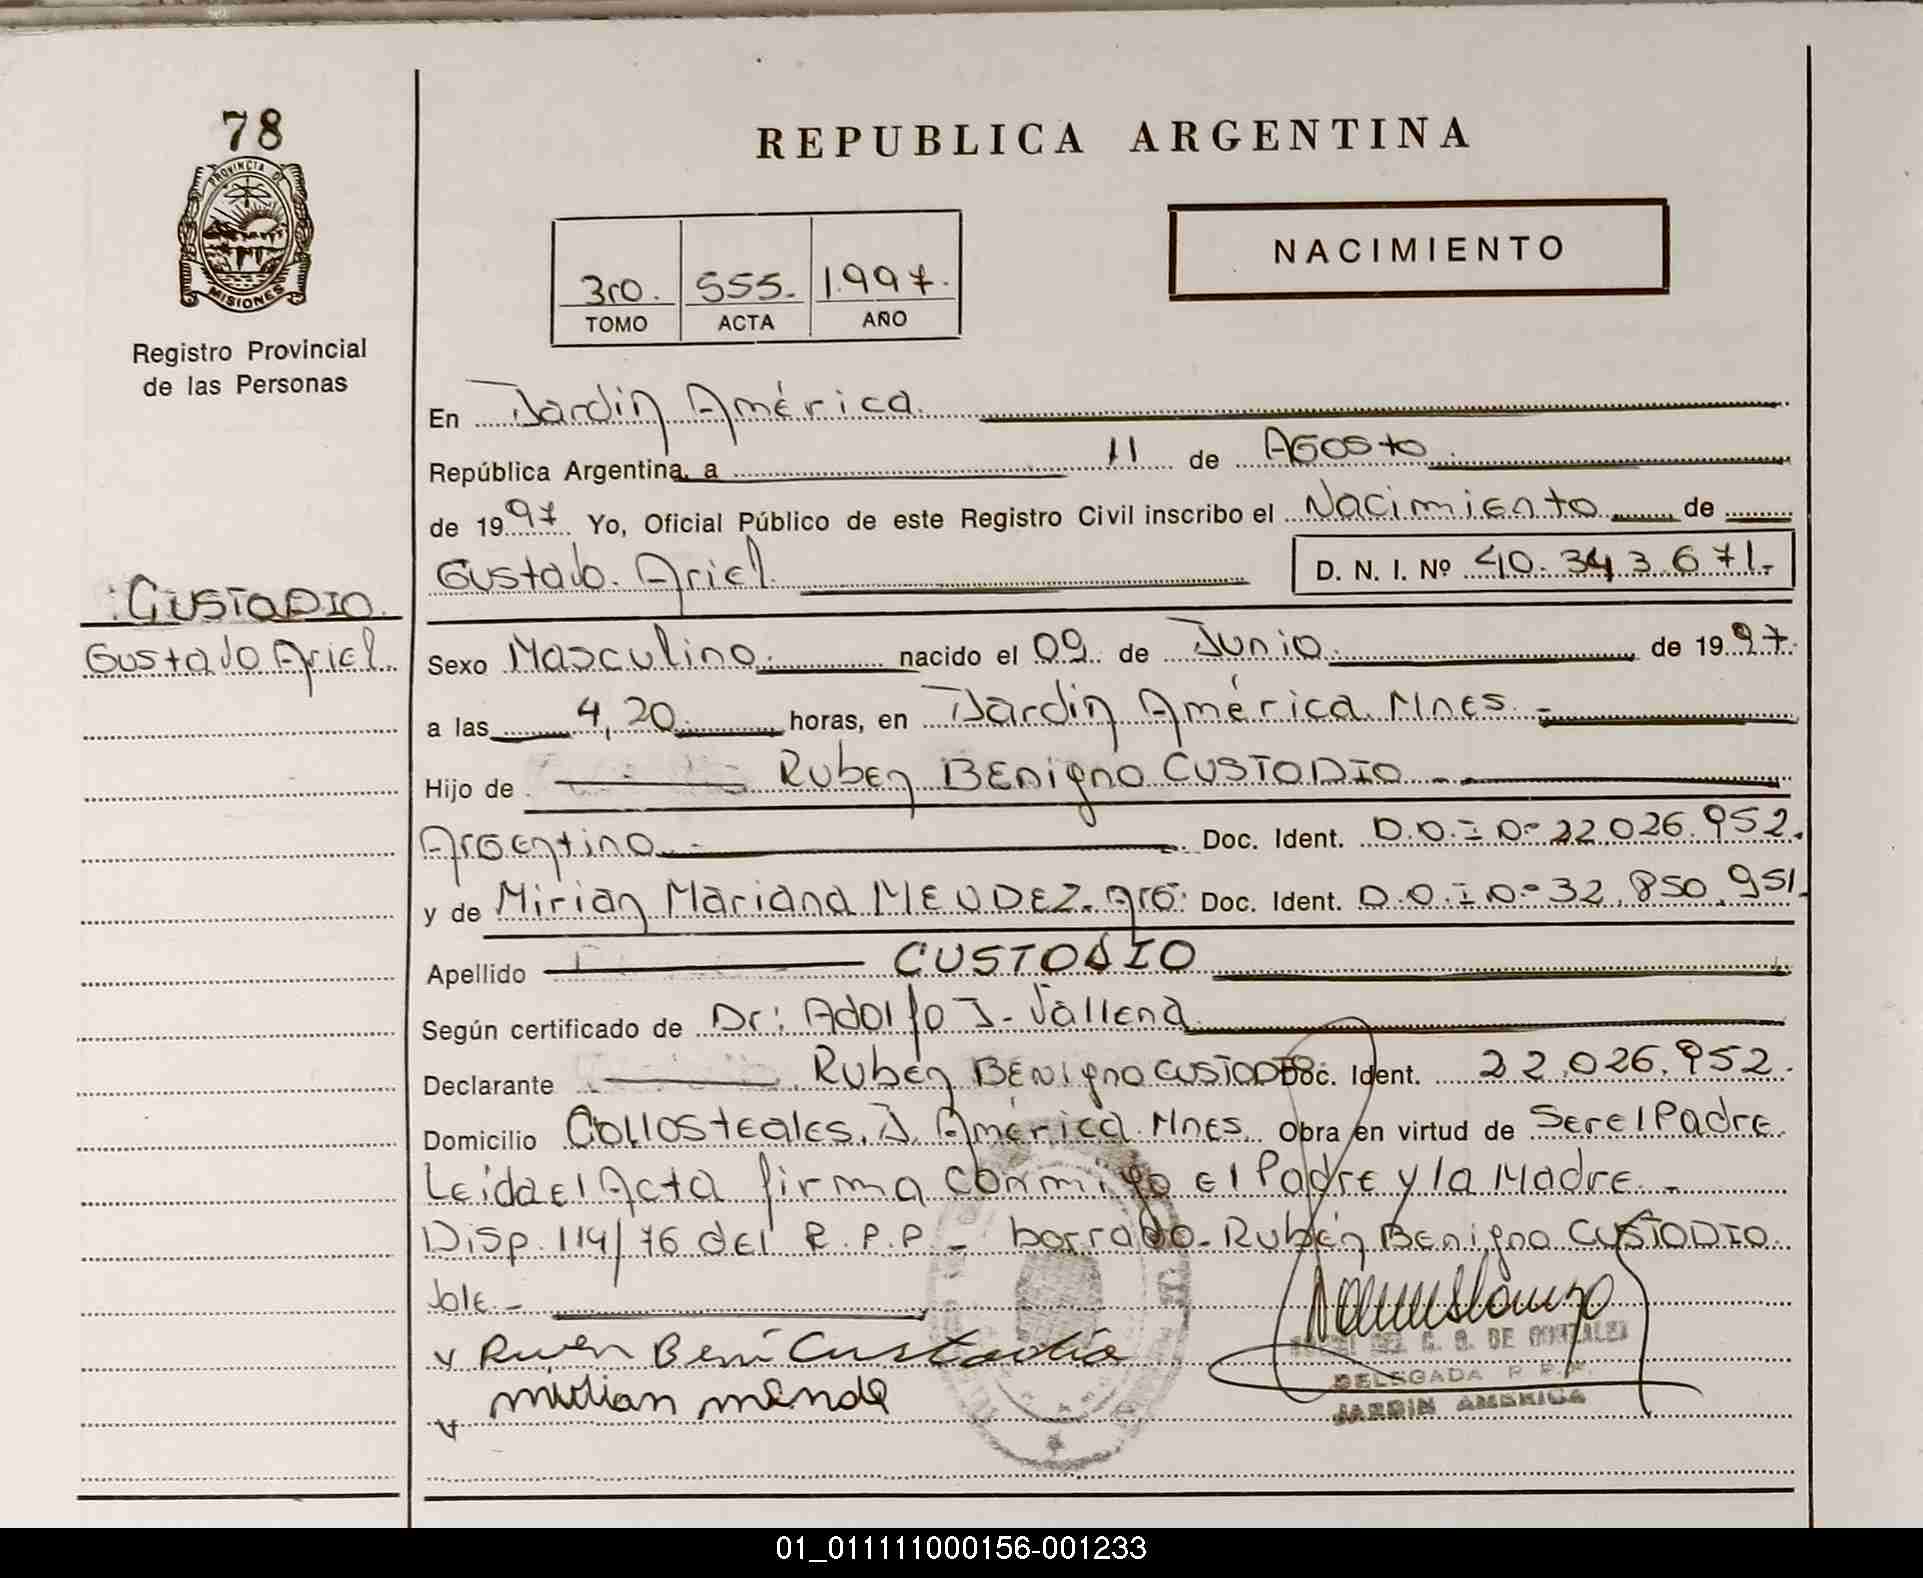 78
PROVINCIA D
MISIONES
Registro Provincial
de las Personas
REPUBLICA ARGENTINA
NACIMIENTO
3ro. 555. 1.997.
TOMO ACTA AÑO
En Jardin América.
República Argentina, a 11 de Agosto
de 1997 Yo, Oficial Público de este Registro Civil inscribo el Nacimiento de
Gustavo Ariel D. N. I. Nº 40.343.671.-
CUSTODIO
Gustavo Ariel
Sexo Masculino. nacido el 09 de Junio de 1997.
a las 4,20 horas, en Jardin América. Mnes. -
Hijo de Ruben Benigno CUSTODIO -
Argentino - Doc. Ident. 22.026.952.
y de Mirian Mariana MENDEZ. Arg. Doc. Ident. 32.850.951.
Apellido CUSTODIO
Según certificado de Dr: Adolfo J. Vallena
Declarante Rubén Benigno CUSTODIO Doc. Ident. 22.026.952.
Domicilio J. América. Mnes. Obra en virtud de Ser el Padre
Leida el Acta firma conmigo el Padre y la Madre. -
Disp. 114/76 del R.P.P. - borrado - Rubén Benigno CUSTODIO.
Vale. -
Custodio
DE GONZALEZ
DELEGADA R.P.P.
JARDIN AMERICA
01_011111000156-001233